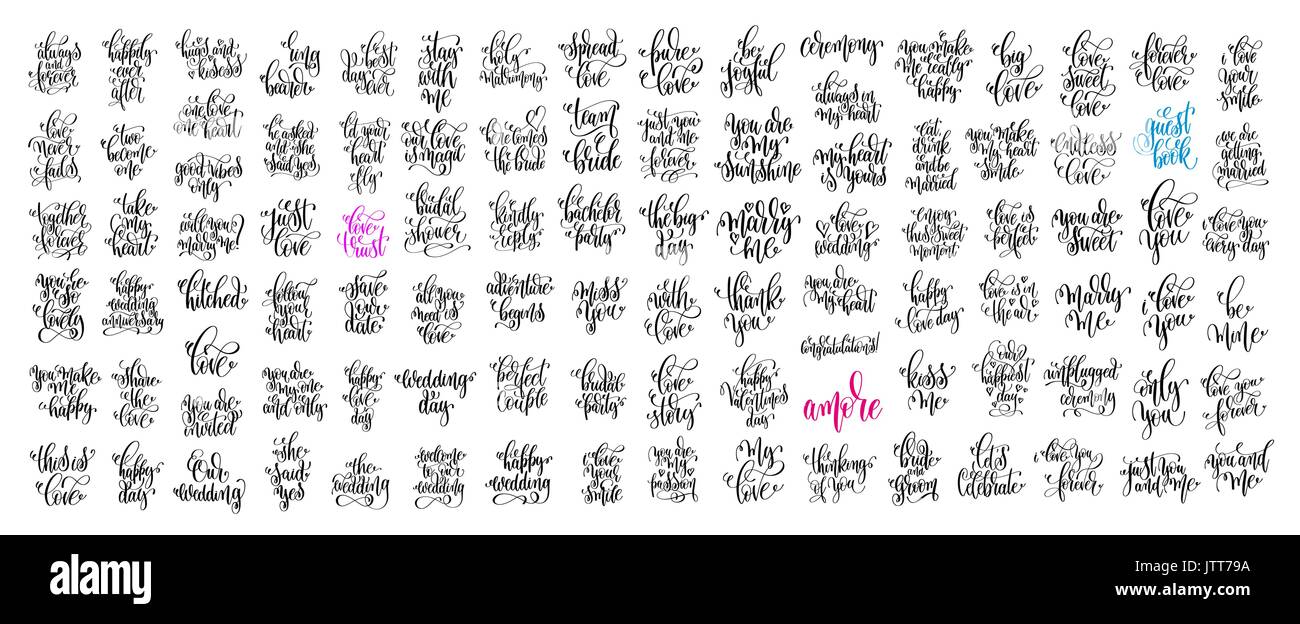 always
and
forever
happily
ever
after
hugs and
kisess
ring
bearer
best
day
ever
stay
with
me
holy
matrimony
spread
love
pure
love
be
joyful
ceremony
you make
me really
happy
big
love
love
sweet
love
forever
love
i love
your
smile
love
never
fads
two
become
one
one love
one heart
good vibes
only
he asked
and she
said yes
let your
heart
fly
our love
is magic
here comes
the bride
team
bride
just you
and me
forever
you are
my
sunshine
always in
my heart
my heart
is yours
eat
drink
and be
married
you make
my heart
smile
endless
love
guest
book
we are
getting
married
together
forever
take
my
heart
will you
marry me?
just
love
love
trust
bridal
shower
kindly
reply
bachelor
party
the big
day
marry
me
love
weddings
enjoy
this sweet
moment
love is
perfect
you are
sweet
love
you
i love you
every day
you're
so
lovely
happy
wedding
anniversary
hitched
follow
your
heart
save
our
date
all you
need is
love
adventure
begins
miss
you
with
love
thank
you
you are
my heart
happy
love day
love is in
the air
marry
me
i love
you
be
mine
love
congratulations!
you make
me
happy
share
the
love
you are
invited
you are
my one
and only
happy
love
day
wedding
day
perfect
couple
bridal
party
love
story
happy
valentines
day
amore
kiss
me
our
happiest
day
unplugged
ceremony
only
you
love you
forever
this is
love
happy
day
our
wedding
she
said
yes
the
wedding
welcome
to our
wedding
happy
wedding
i love
your
smile
you are
my
passion
my
love
thinking
of you
bride
and
groom
let's
celebrate
i love you
forever
just you
and me
you and
me
alamy
Image ID: JTT79A
www.alamy.com